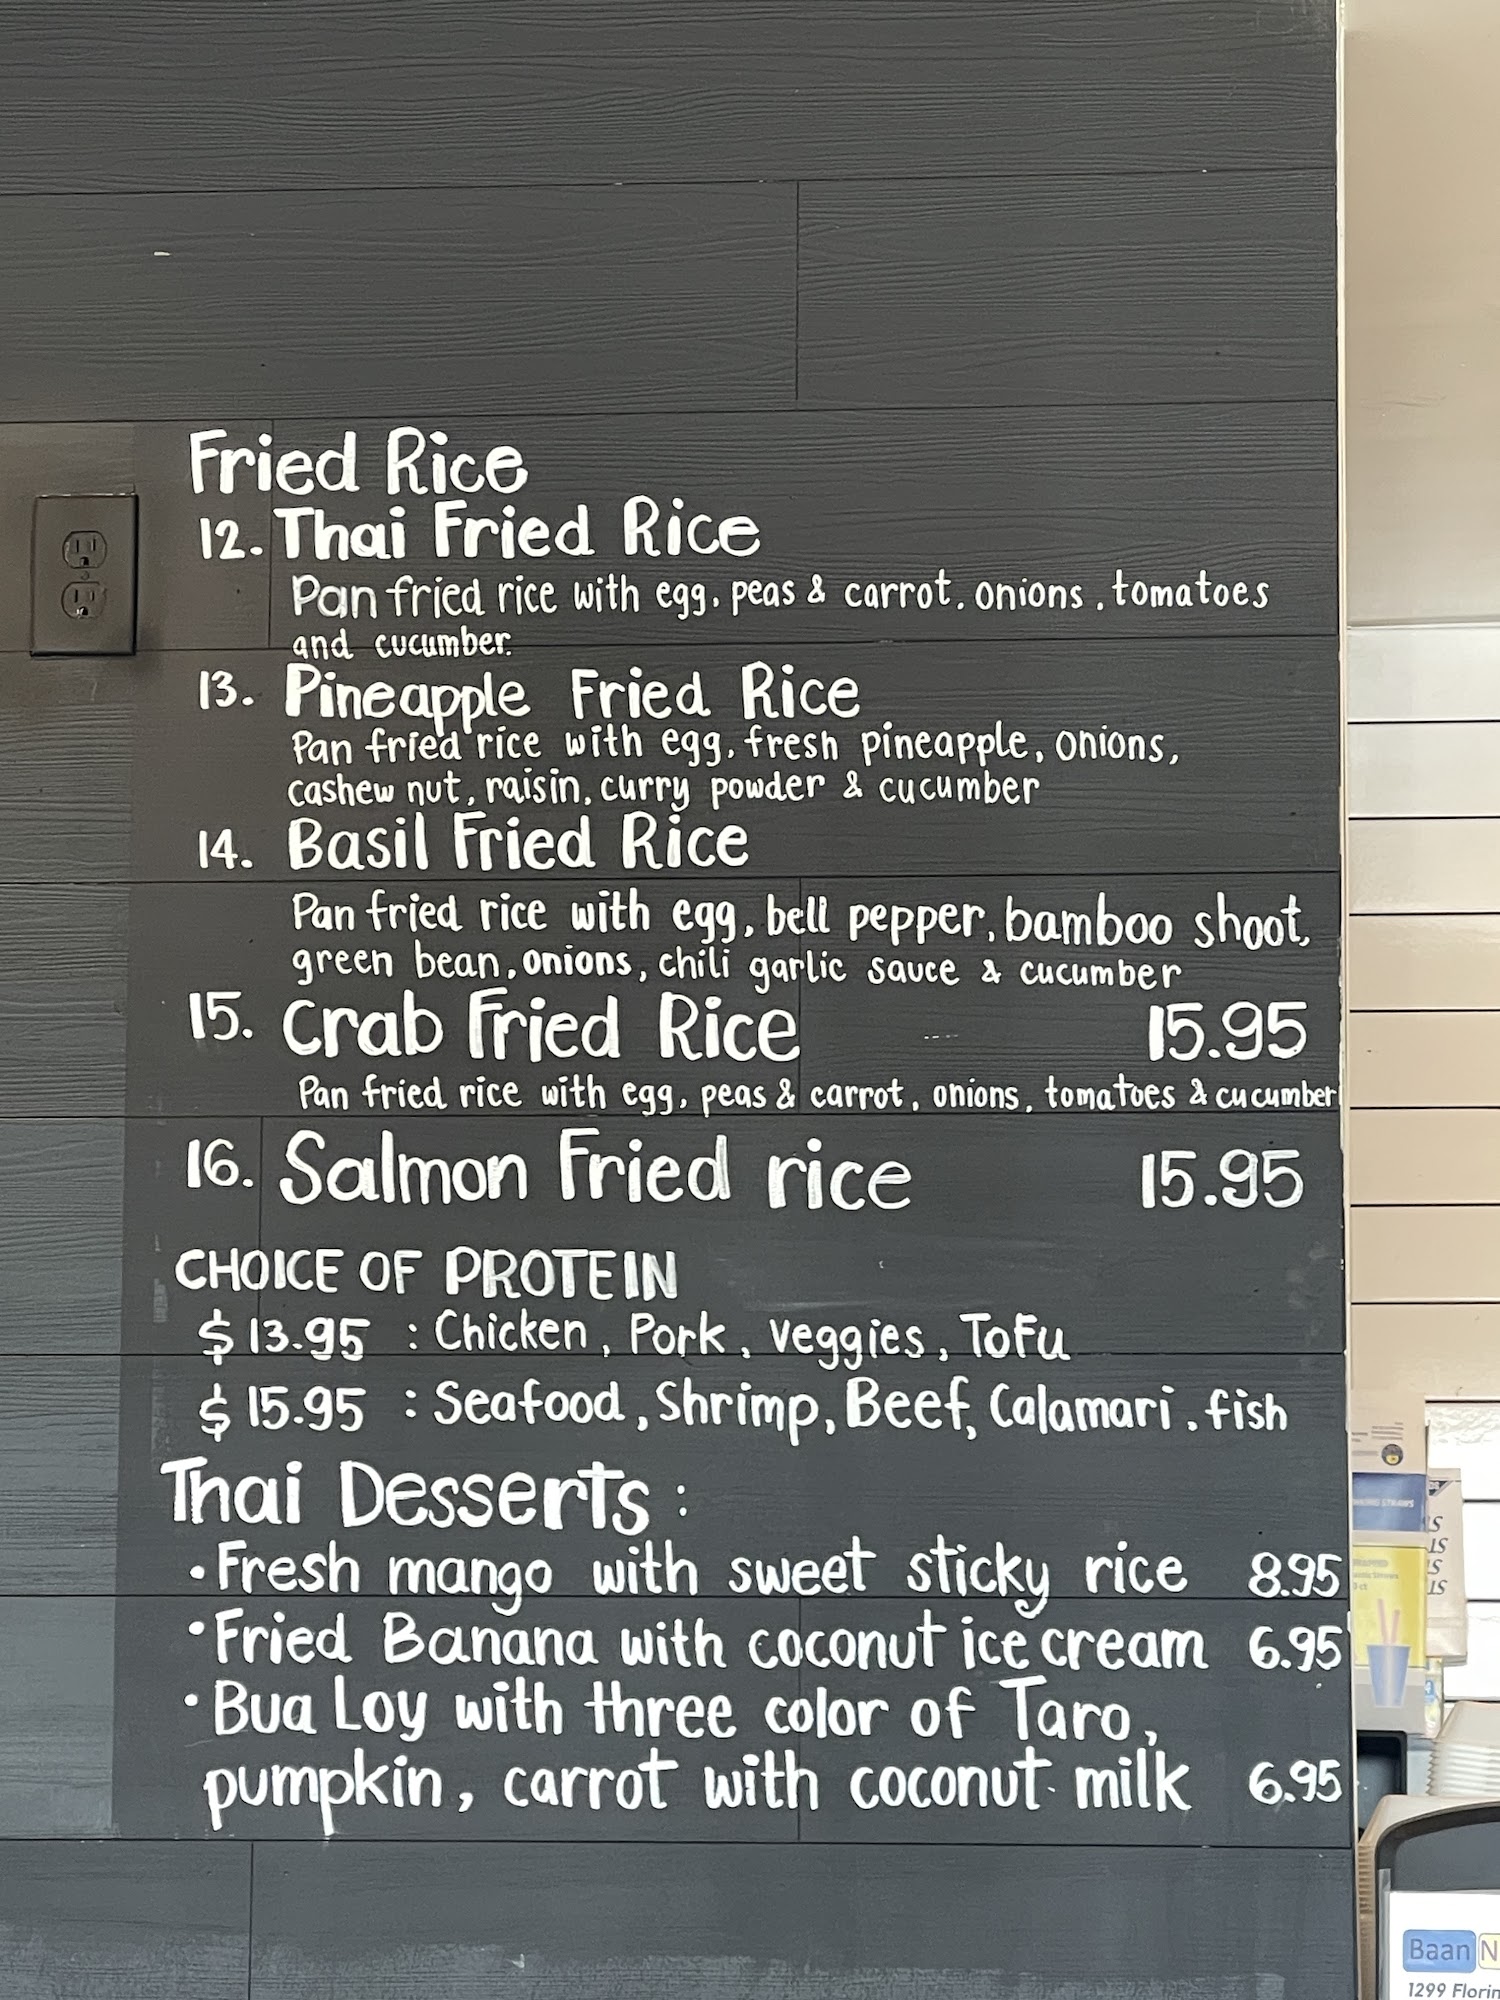 Fried Rice
12. Thai Fried Rice
Pan fried rice with egg, peas & carrot, onions, tomatoes
and cucumber.
13. Pineapple Fried Rice
Pan fried rice with egg, fresh pineapple, onions,
cashew nut, raisin, curry powder & cucumber
14. Basil Fried Rice
Pan fried rice with egg, bell pepper, bamboo shoot,
green bean, onions, chili garlic sauce & cucumber
15. Crab Fried Rice 15.95
Pan fried rice with egg, peas & carrot, onions, tomatoes & cucumber
16. Salmon Fried rice 15.95
CHOICE OF PROTEIN
$13.95 : Chicken, Pork, Veggies, Tofu
$15.95 : Seafood, Shrimp, Beef, Calamari, fish
Thai Desserts :
• Fresh mango with sweet sticky rice 8.95
• Fried Banana with coconut ice cream 6.95
• Bua Loy with three color of Taro,
pumpkin, carrot with coconut milk 6.95
STRAWS
Baan
1299 Florin